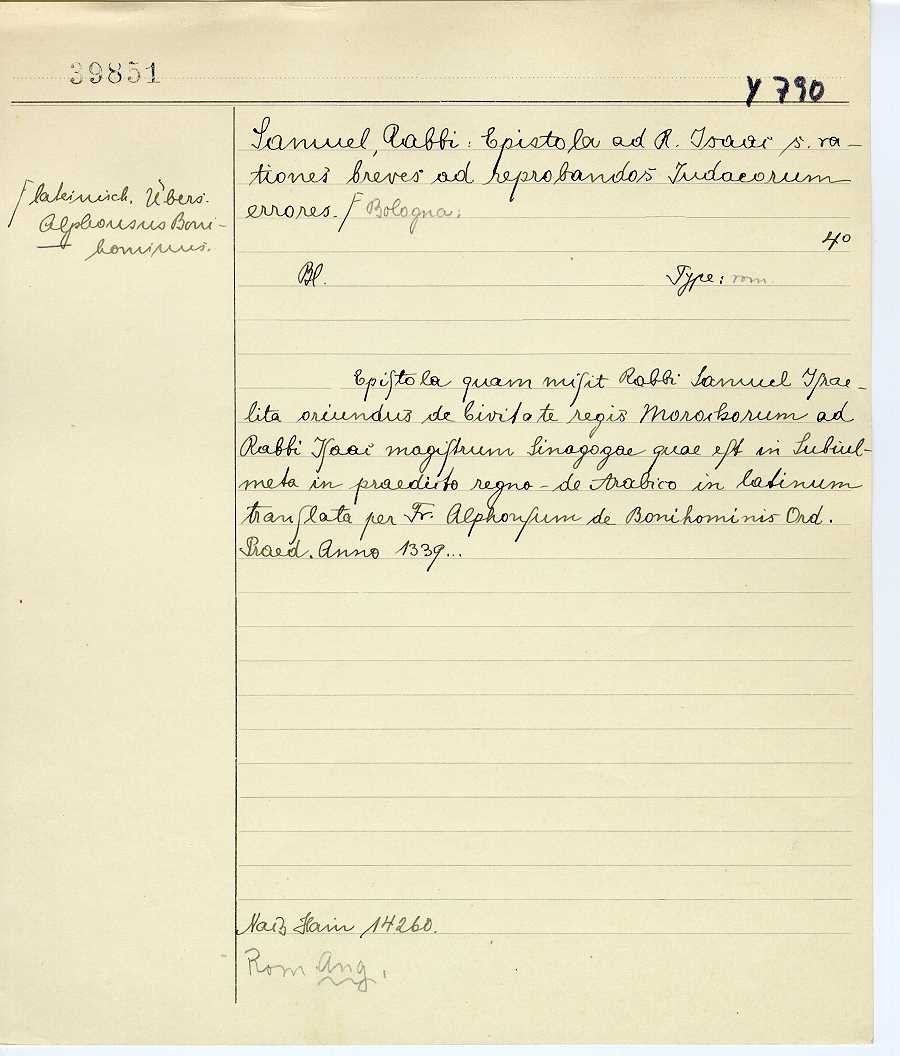 39851
Y 790
Samuel, Rabbi: Epistola ad R. Isaac s. ra-
tiones breves ad reprobandos Judaeorum
errores. / Bologna:
/ lateinisch. Übers.
Alphonsus Boni-
hominus.
4°
Bl. Type: rom.
Epiſtola quam miſit Rabbi Samuel Iſrae-
lita oriundus de Civitate regis Morochorum ad
Rabbi Iſaac magiſtrum Sinagogae quae eſt in Subiul-
meta in praedicto regno - de Arabico in latinum
tranſlata per Fr. Alphonſum de Bonihominis Ord.
Praed. Anno 1339...
Nach Hain 14260.
Rom Ang.